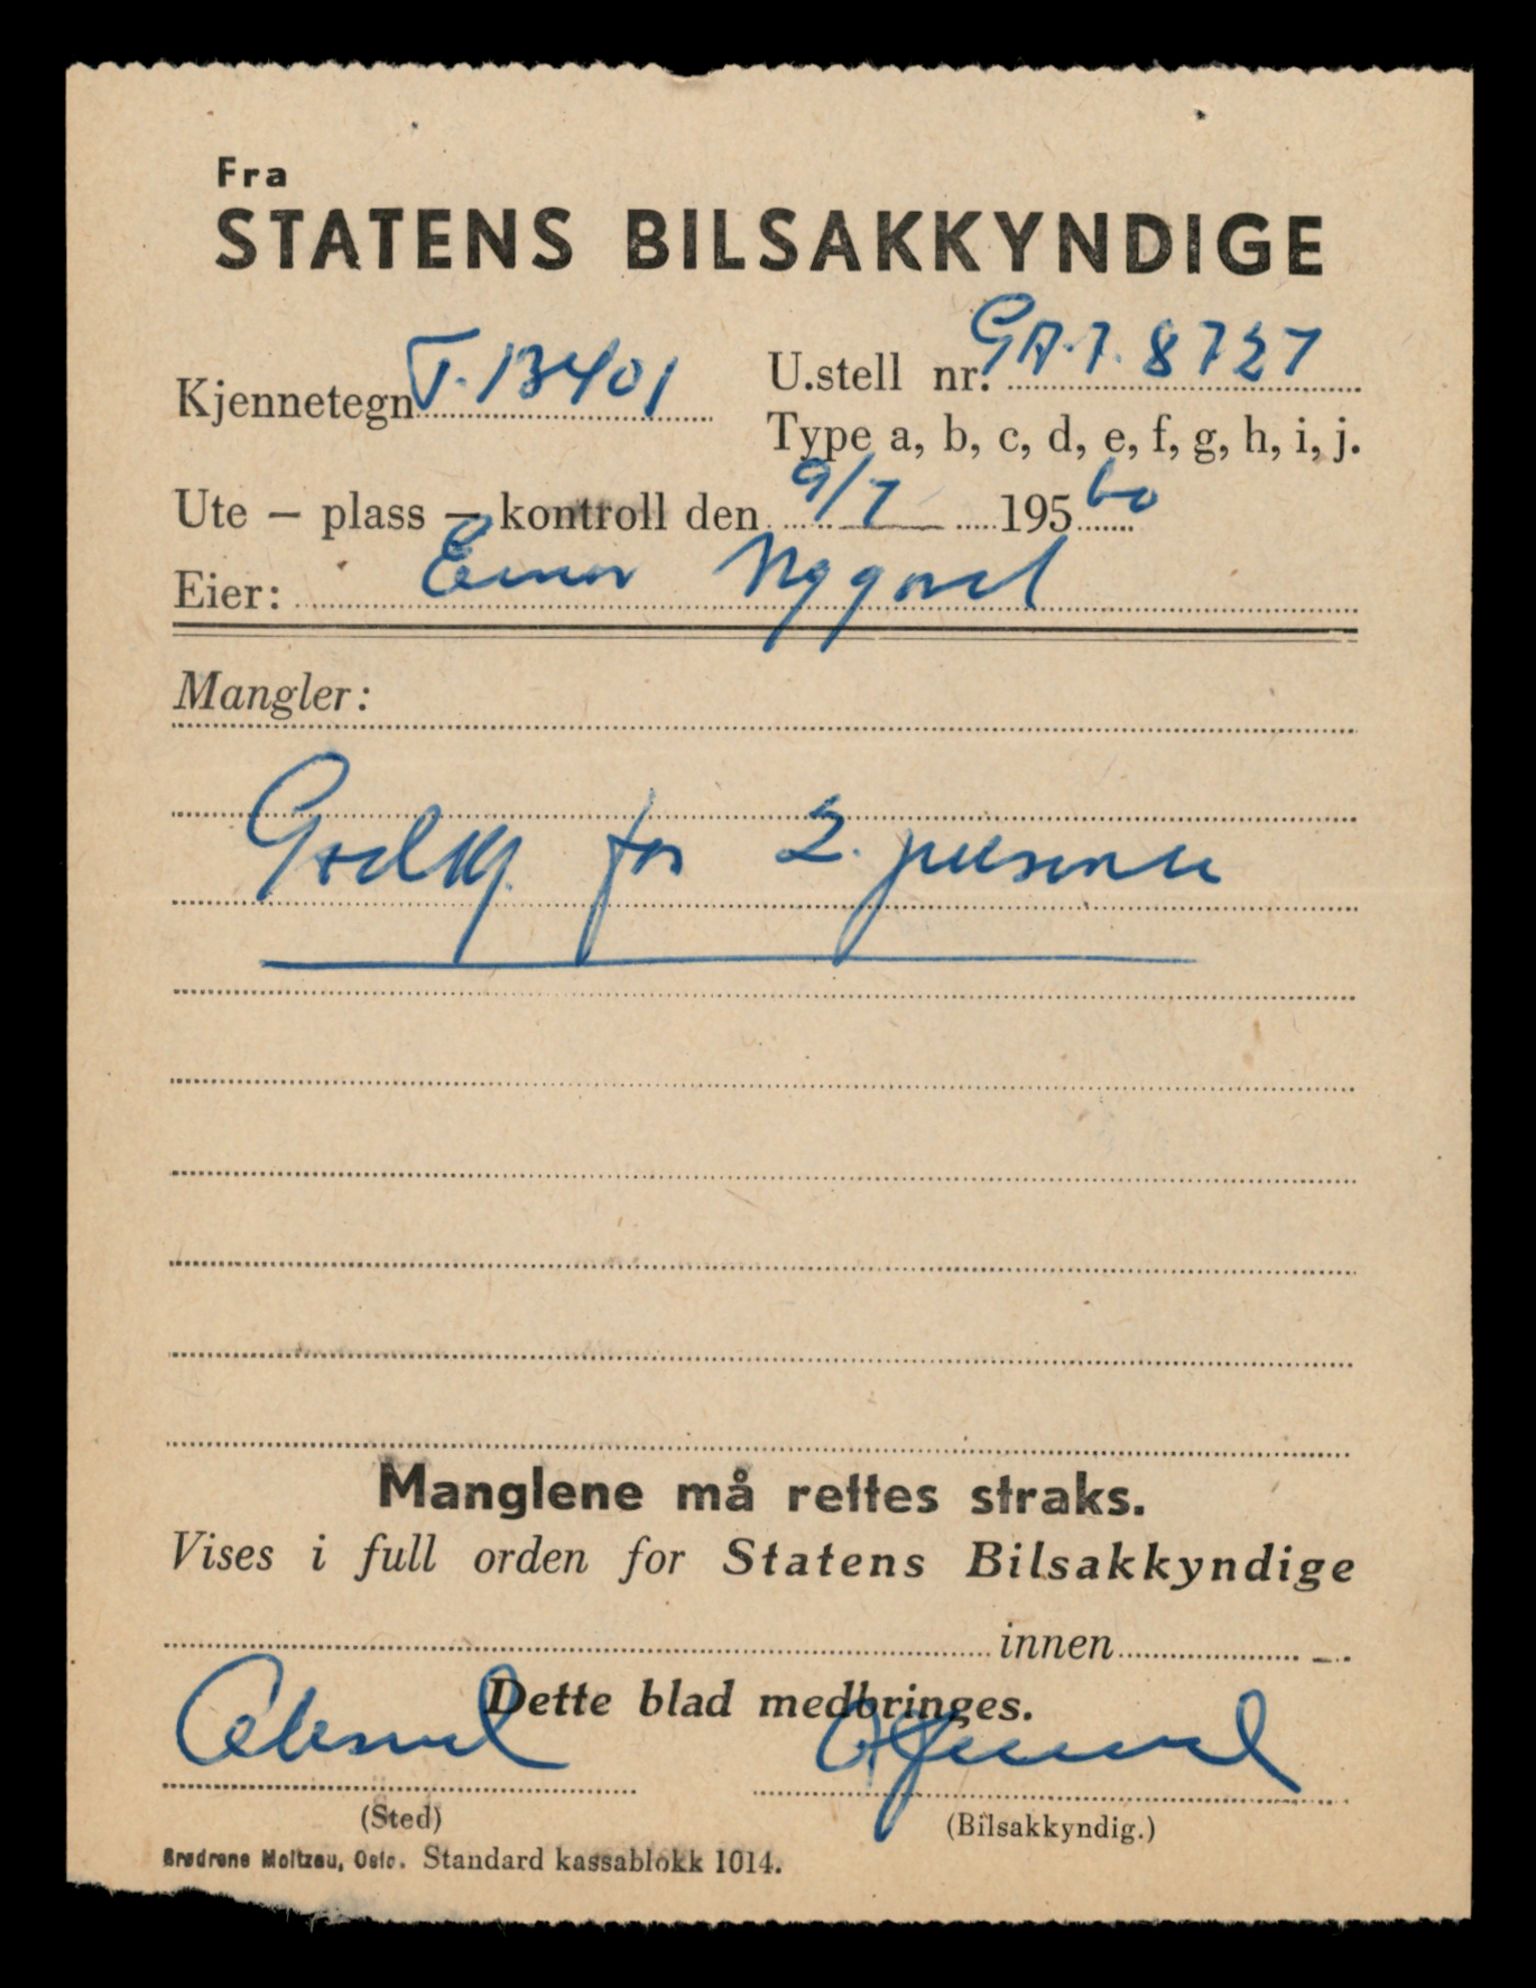 Fra
STATENS BILSAKKYNDIGE
Kjennetegn T. 13401
U.stell nr. GA.7. 8727
Type a, b, c, d, e, f, g, h, i, j.
Ute — plass — kontroll den 9/7 195 60
Eier: Einar
Mangler:
Godkj. for 2. personer
Manglene må rettes straks.
Vises i full orden for Statens Bilsakkyndige
innen
Dette blad medbringes.
(Sted)
(Bilsakkyndig.)
Brødrene Moltzau, Oslo. Standard kassablokk 1014.